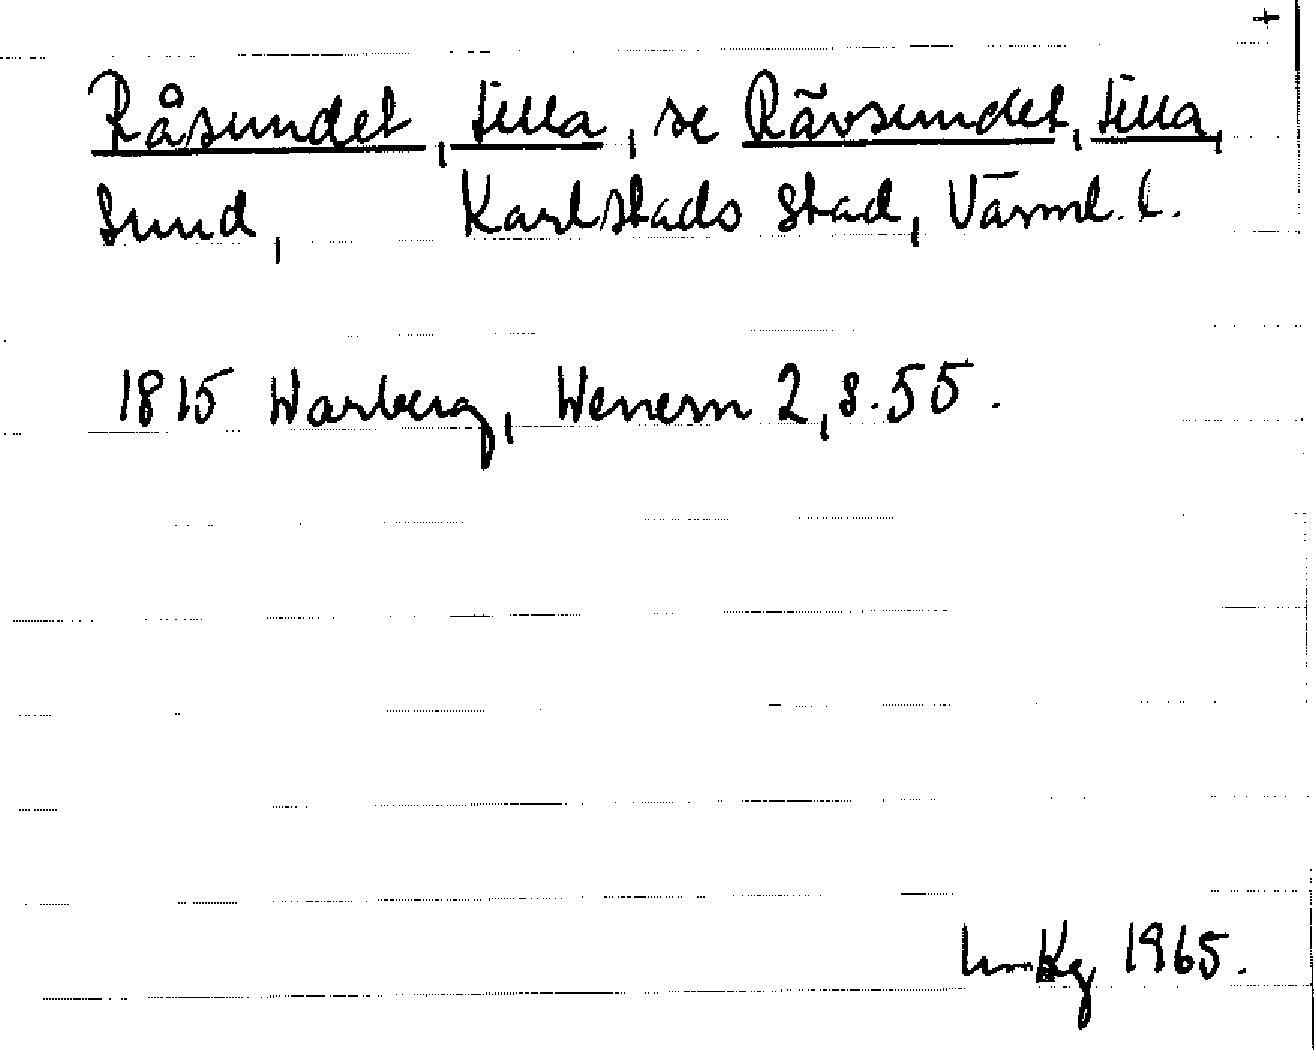 +
Råsundet, Lilla, se Rävsundet, Lilla,
Sund, Karlstads stad, Värml. l.
1815 Warberg, Wenern 2, s. 55.
1965.